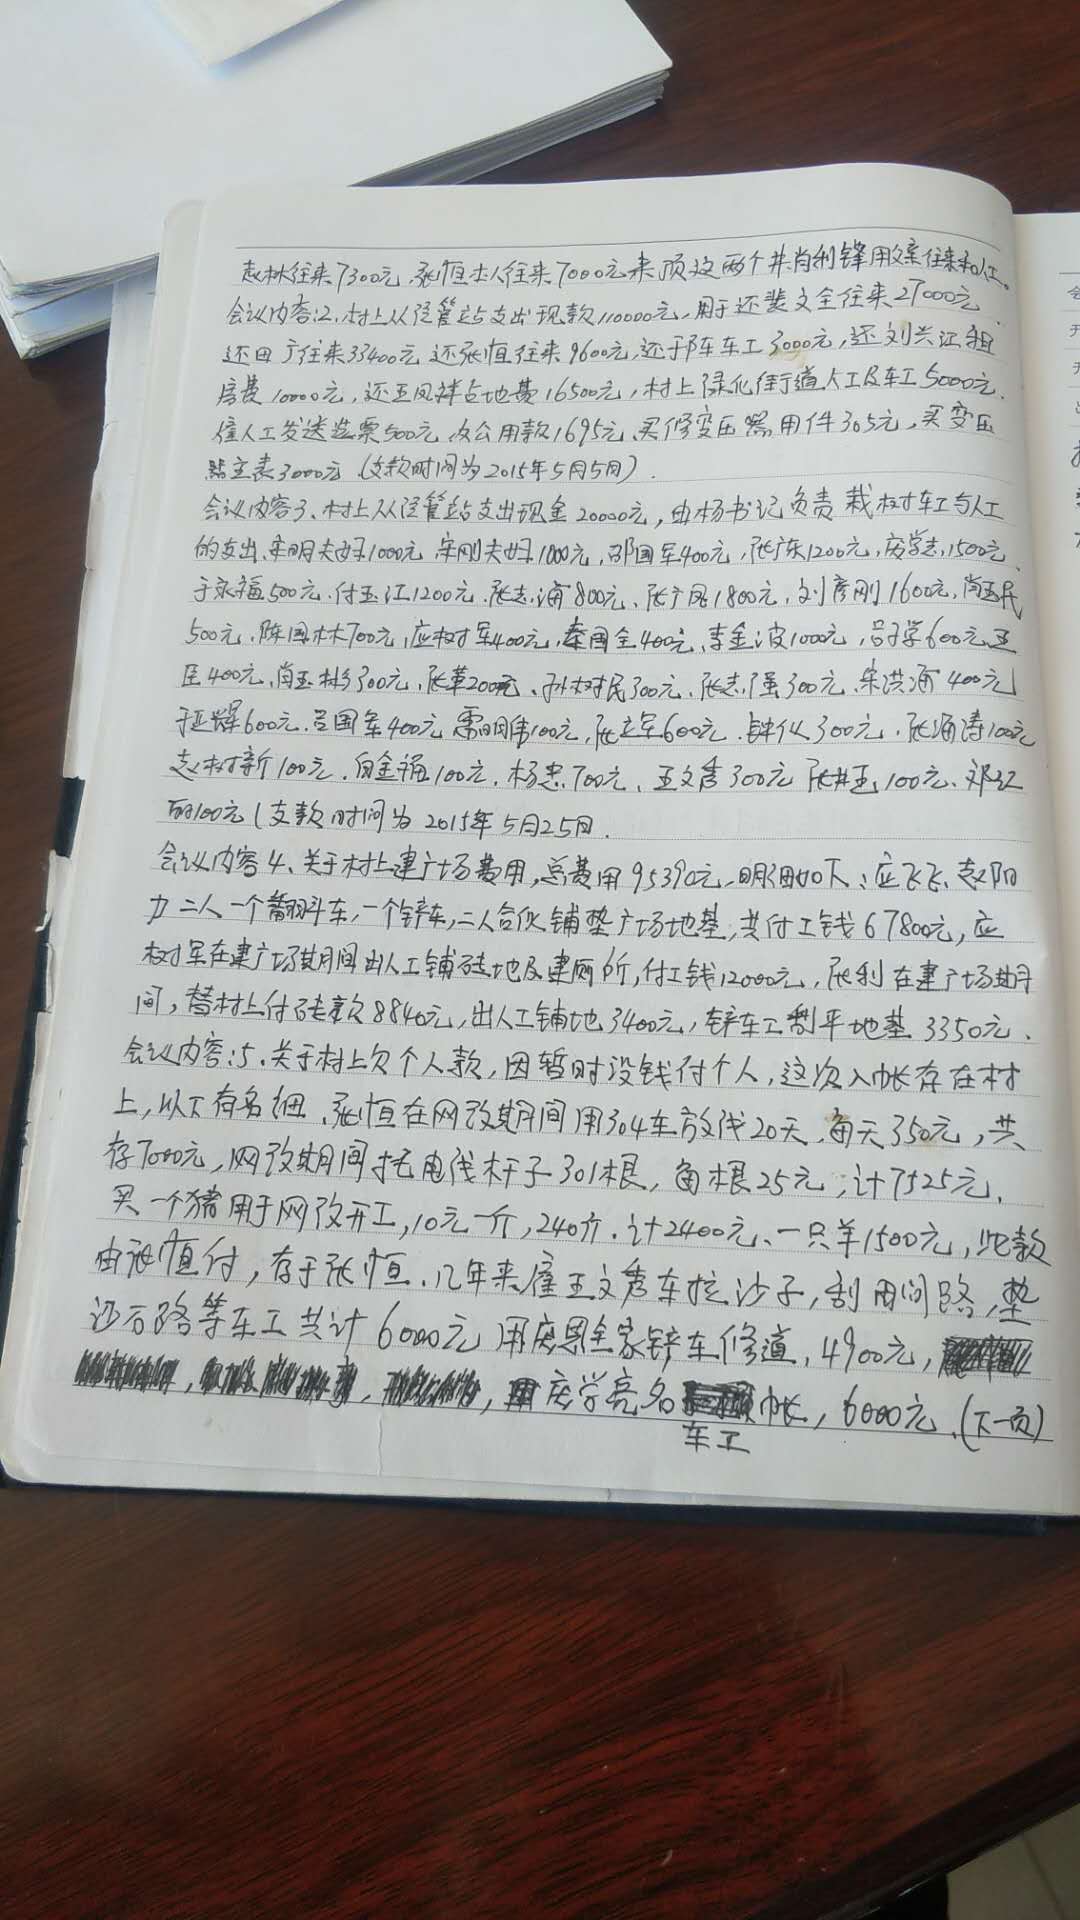 赵林往来7300元,张恒本人往来7000元来顶这两个井,肖利锋用往来和人工。
会议内容:2、村上从经管站支出现款110000元,用于还裴文全往来27000元
还田广往来33400元还张恒往来9600元,还于阵车工3000元,还刘兴江租
房费10000元,还王凤祥占地费16500元,村上绿化街道人工及车工5000元、
雇人工发送选票500元 办公用款1695元、买修变压器用件305元,买变压
器主表3000元 (支款时间为2015年5月5日)
会议内容3、村上从经管站支出现金20000元,由杨书记负责栽树车工与人工
的支出、宋明夫妇1000元,宋刚夫妇1000元,邵国军400元,张广东1200元,庞学志1500元、
于永福500元.付玉江1200元.张志海800元、张广凤1800元,刘彦刚1600元,肖玉民
500元.陈国林700元,应树军400元,秦国全400元,李金波1000元,吕子学600元,王
臣400元、肖玉彬300元、张革200元、孙树民300元、张志强300元、宋洪海400元
于亚辉600元、吕国军400元 雷明伟100元,张立军600元、钟化300元.张海涛100元
赵树新100元.白金福100元.杨忠700元、王文秀300元 张井玉100元、邓红
100元(支款时间为2015年5月25日.
会议内容4、关于村上建广场费用,总费用95390元,明细如下:应飞飞、赵阳
力二人一个翻斗车,一个铲车,二人合伙铺垫广场地基,共付工钱67800元,应
树军在建广场其月间出人工铺砖地及建厕所,付工钱12000元,张利在建广场期
间,替村上付砖款8840元,出人工铺地3400元,铲车工割平地基3350元、
会议内容:5、关于村上欠个人款,因暂时没钱付个人,这次入帐存在村
上,以下有名细、张恒在网改期间用304车放线20天,每天350元,共
存7000元,网改期间拉电线杆子301根,每根25元,计7525元、
买一个猪用于网改开工,10元一斤,240斤.计2400元、一只羊1500元,此款
由张恒付,存于张恒.几年来雇王文秀车拉沙子,刮田间路,垫
沙石路等车工共计6000元 用庞恩全家铲车修道,4900元,
庞学亮名车工帐,6000元、(下一页)